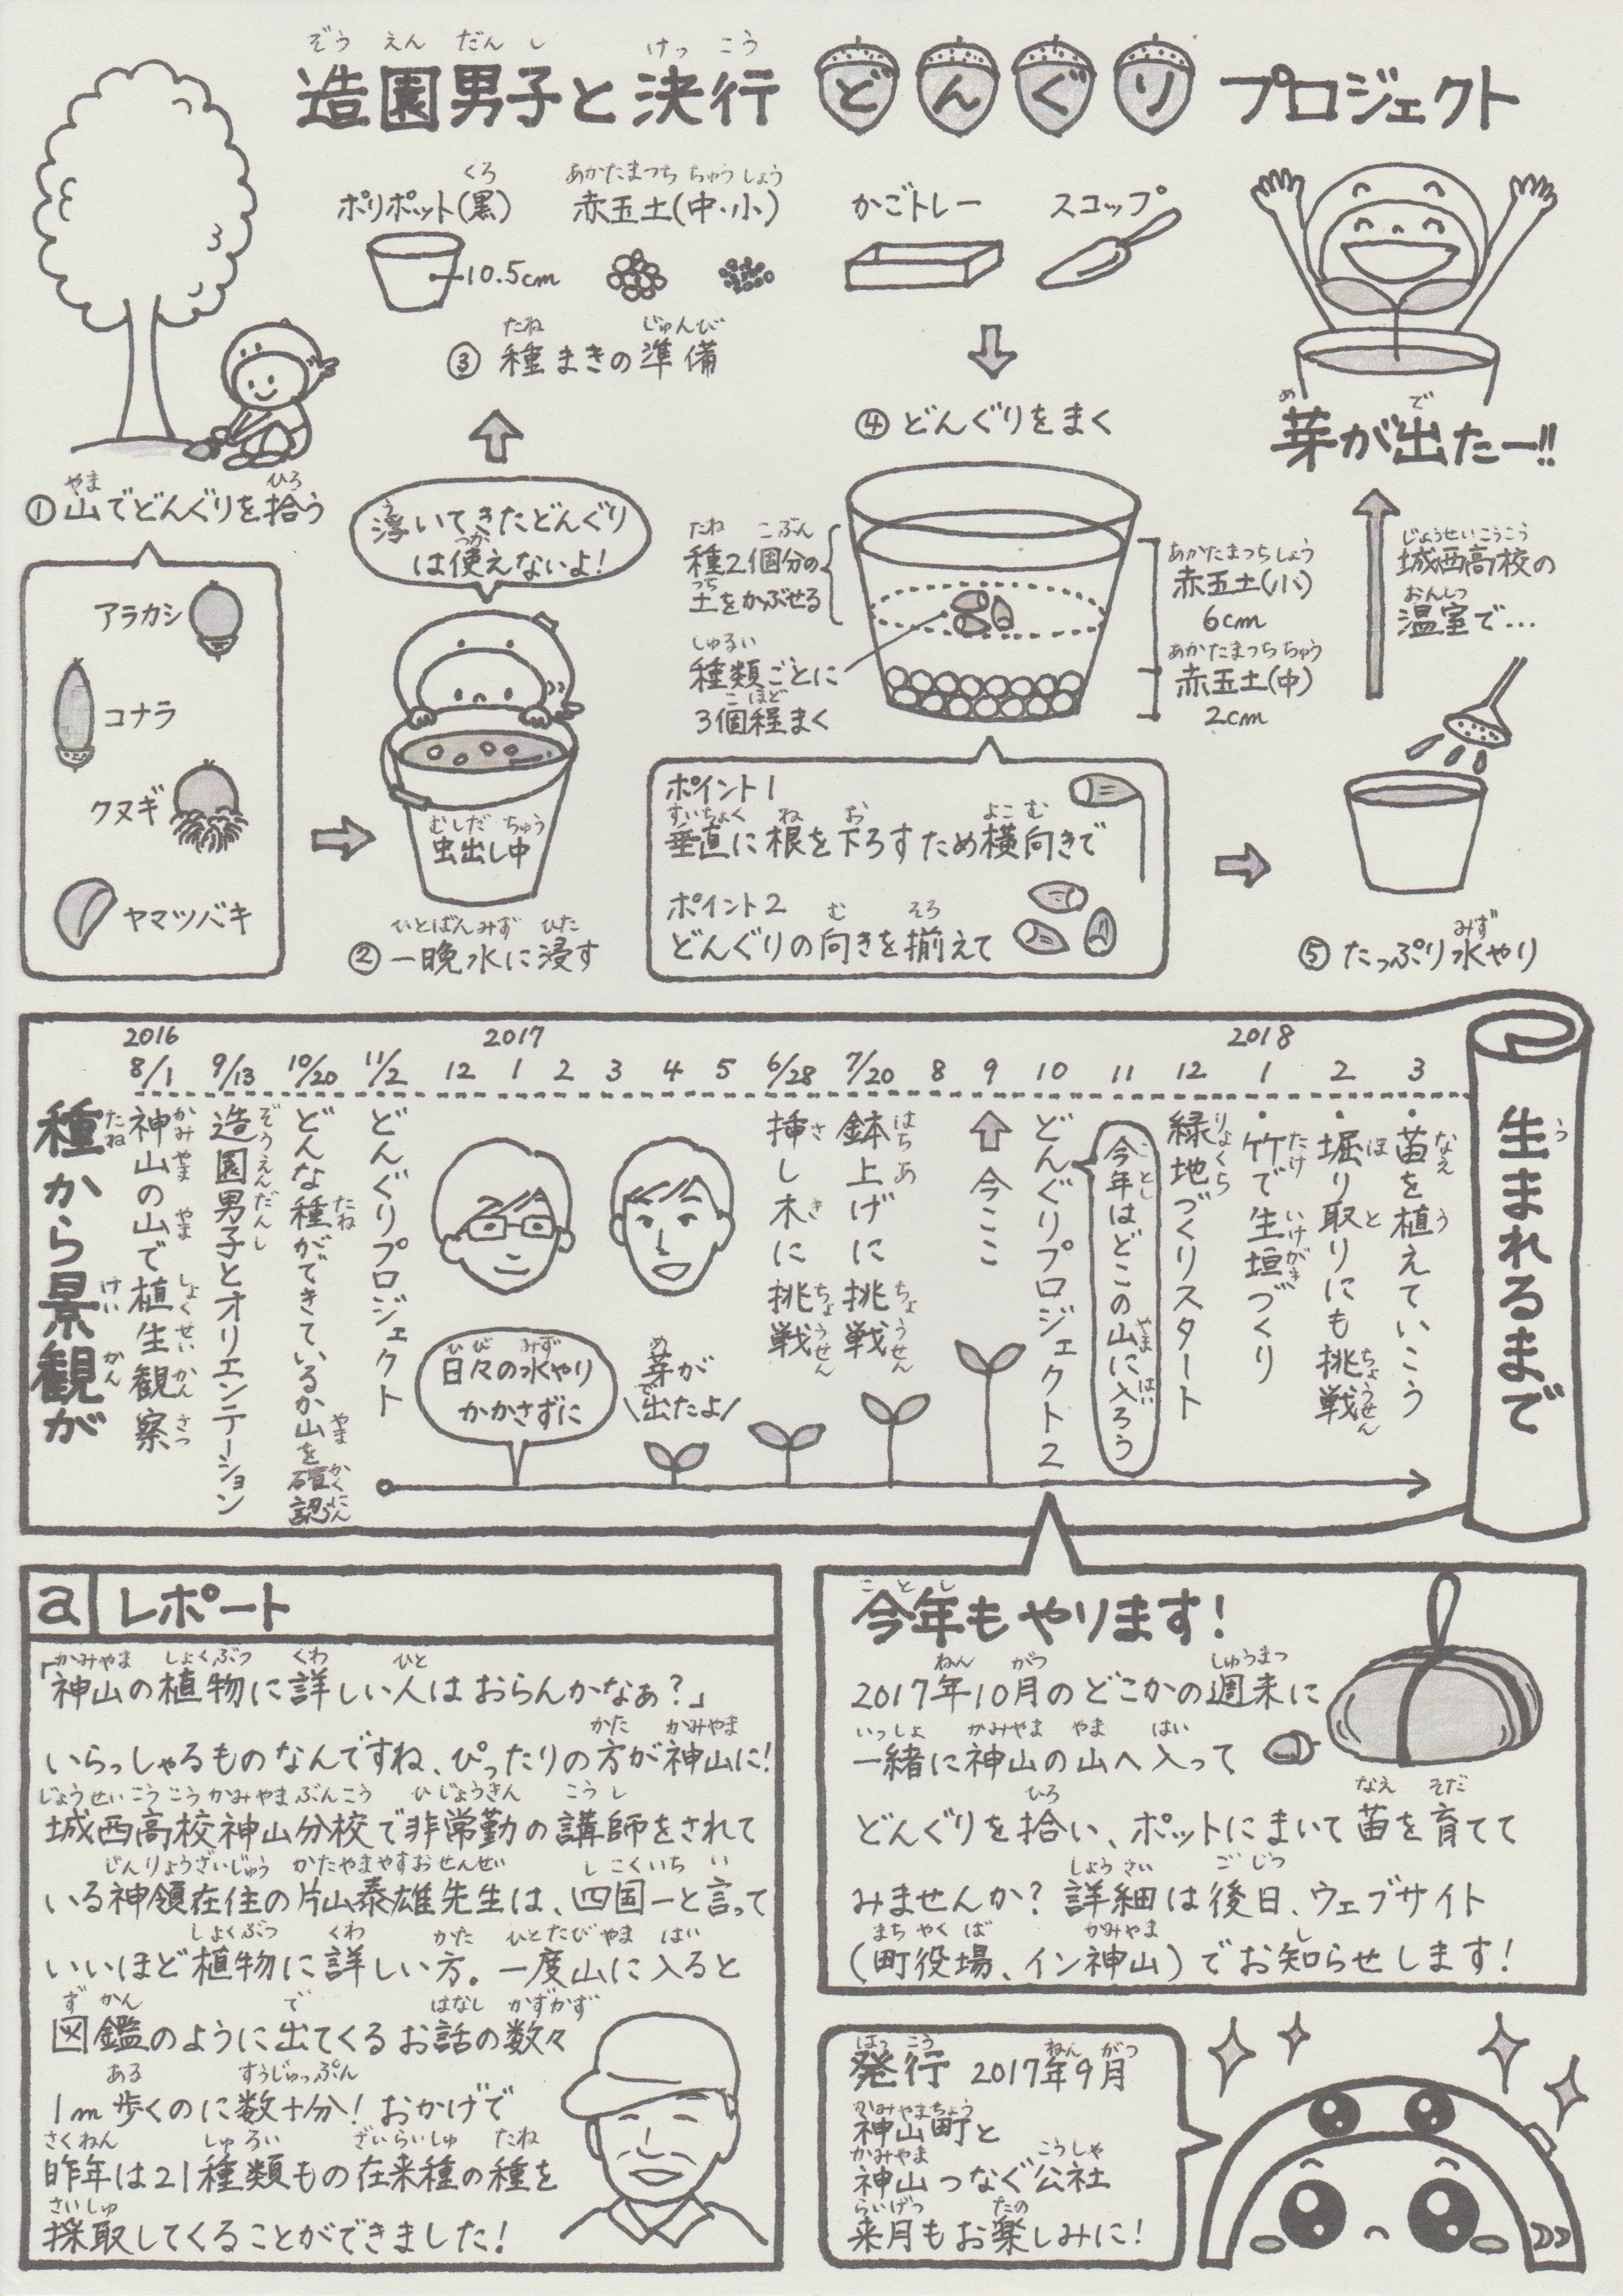 造園男子と決行どんぐりプロジェクト
ポリポット(黒)
10.5cm
赤玉土(中・小)
かごトレー
スコップ
③ 種まきの準備
① 山でどんぐりを拾う
アラカシ
コナラ
クヌギ
ヤマツバキ
浮いてきたどんぐり
は使えないよ!
虫出し中
② 一晩水に浸す
④ どんぐりをまく
種2個分の
土をかぶせる
種類ごとに
3個程まく
赤玉土(小)
6cm
赤玉土(中)
2cm
ポイント1
垂直に根を下ろすため横向きで
ポイント2
どんぐりの向きを揃えて
⑤ たっぷり水やり
城西高校の
温室で…
芽が出たー!!
種から景観が
生まれるまで
2016
8/1
神山の山で植生観察
9/13
造園男子とオリエンテーション
10/20
どんな種ができているか山を確認
11/2
どんぐりプロジェクト
12
2017
1
2
3
4
5
日々の水やり
かかさずに
芽が
出たよ
6/28
挿し木に挑戦
7/20
鉢上げに挑戦
8
9
今ここ
10
どんぐりプロジェクト2
今年はどこの山に入ろう
11
12
緑地づくりスタート
2018
1
・竹で生垣づくり
2
・堀り取りにも挑戦
3
・苗を植えていこう
a レポート
「神山の植物に詳しい人はおらんかなぁ?」
いらっしゃるものなんですね、ぴったりの方が神山に!
城西高校神山分校で非常勤の講師をされて
いる神領在住の片山泰雄先生は、四国一と言って
いいほど植物に詳しい方。一度山に入ると
図鑑のように出てくるお話の数々
1m歩くのに数十分! おかげで
昨年は21種類もの在来種の種を
採取してくることができました!
今年もやります!
2017年10月のどこかの週末に
一緒に神山の山へ入って
どんぐりを拾い、ポットにまいて苗を育てて
みませんか? 詳細は後日、ウェブサイト
(町役場、イン神山)でお知らせします!
発行 2017年9月
神山町と
神山つなぐ公社
来月もお楽しみに!